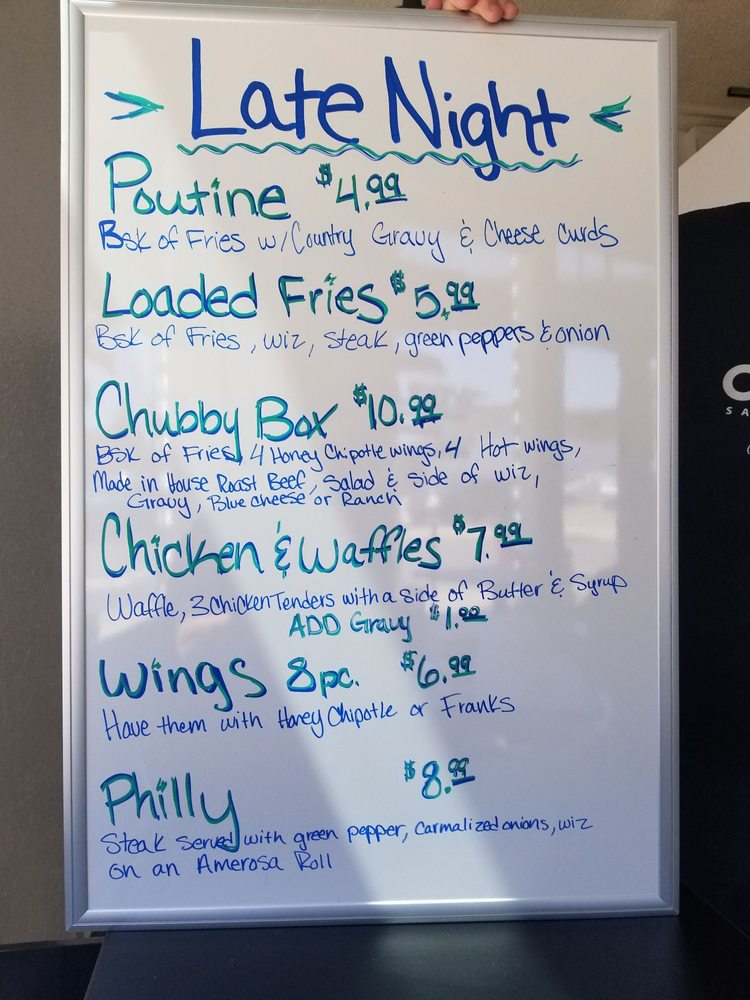 Late Night
Poutine $4.99
Bsk of Fries w/Country Gravy & Cheese curds
Loaded Fries $5.99
Bsk of Fries, wiz, steak, green peppers & onion
Chubby Box $10.99
Bsk of Fries, 4 Honey Chipotle wings, 4 Hot wings,
Made in House Roast Beef, Salad & side of wiz,
Gravy, Blue cheese or Ranch
Chicken & Waffles $7.99
Waffle, 3 Chicken Tenders with a side of Butter & Syrup
ADD Gravy $1.00
Wings 8pc. $6.99
Have them with Honey Chipotle or Franks
Philly $8.99
Steak served with green pepper, carmalized onions, wiz
on an Amerosa Roll